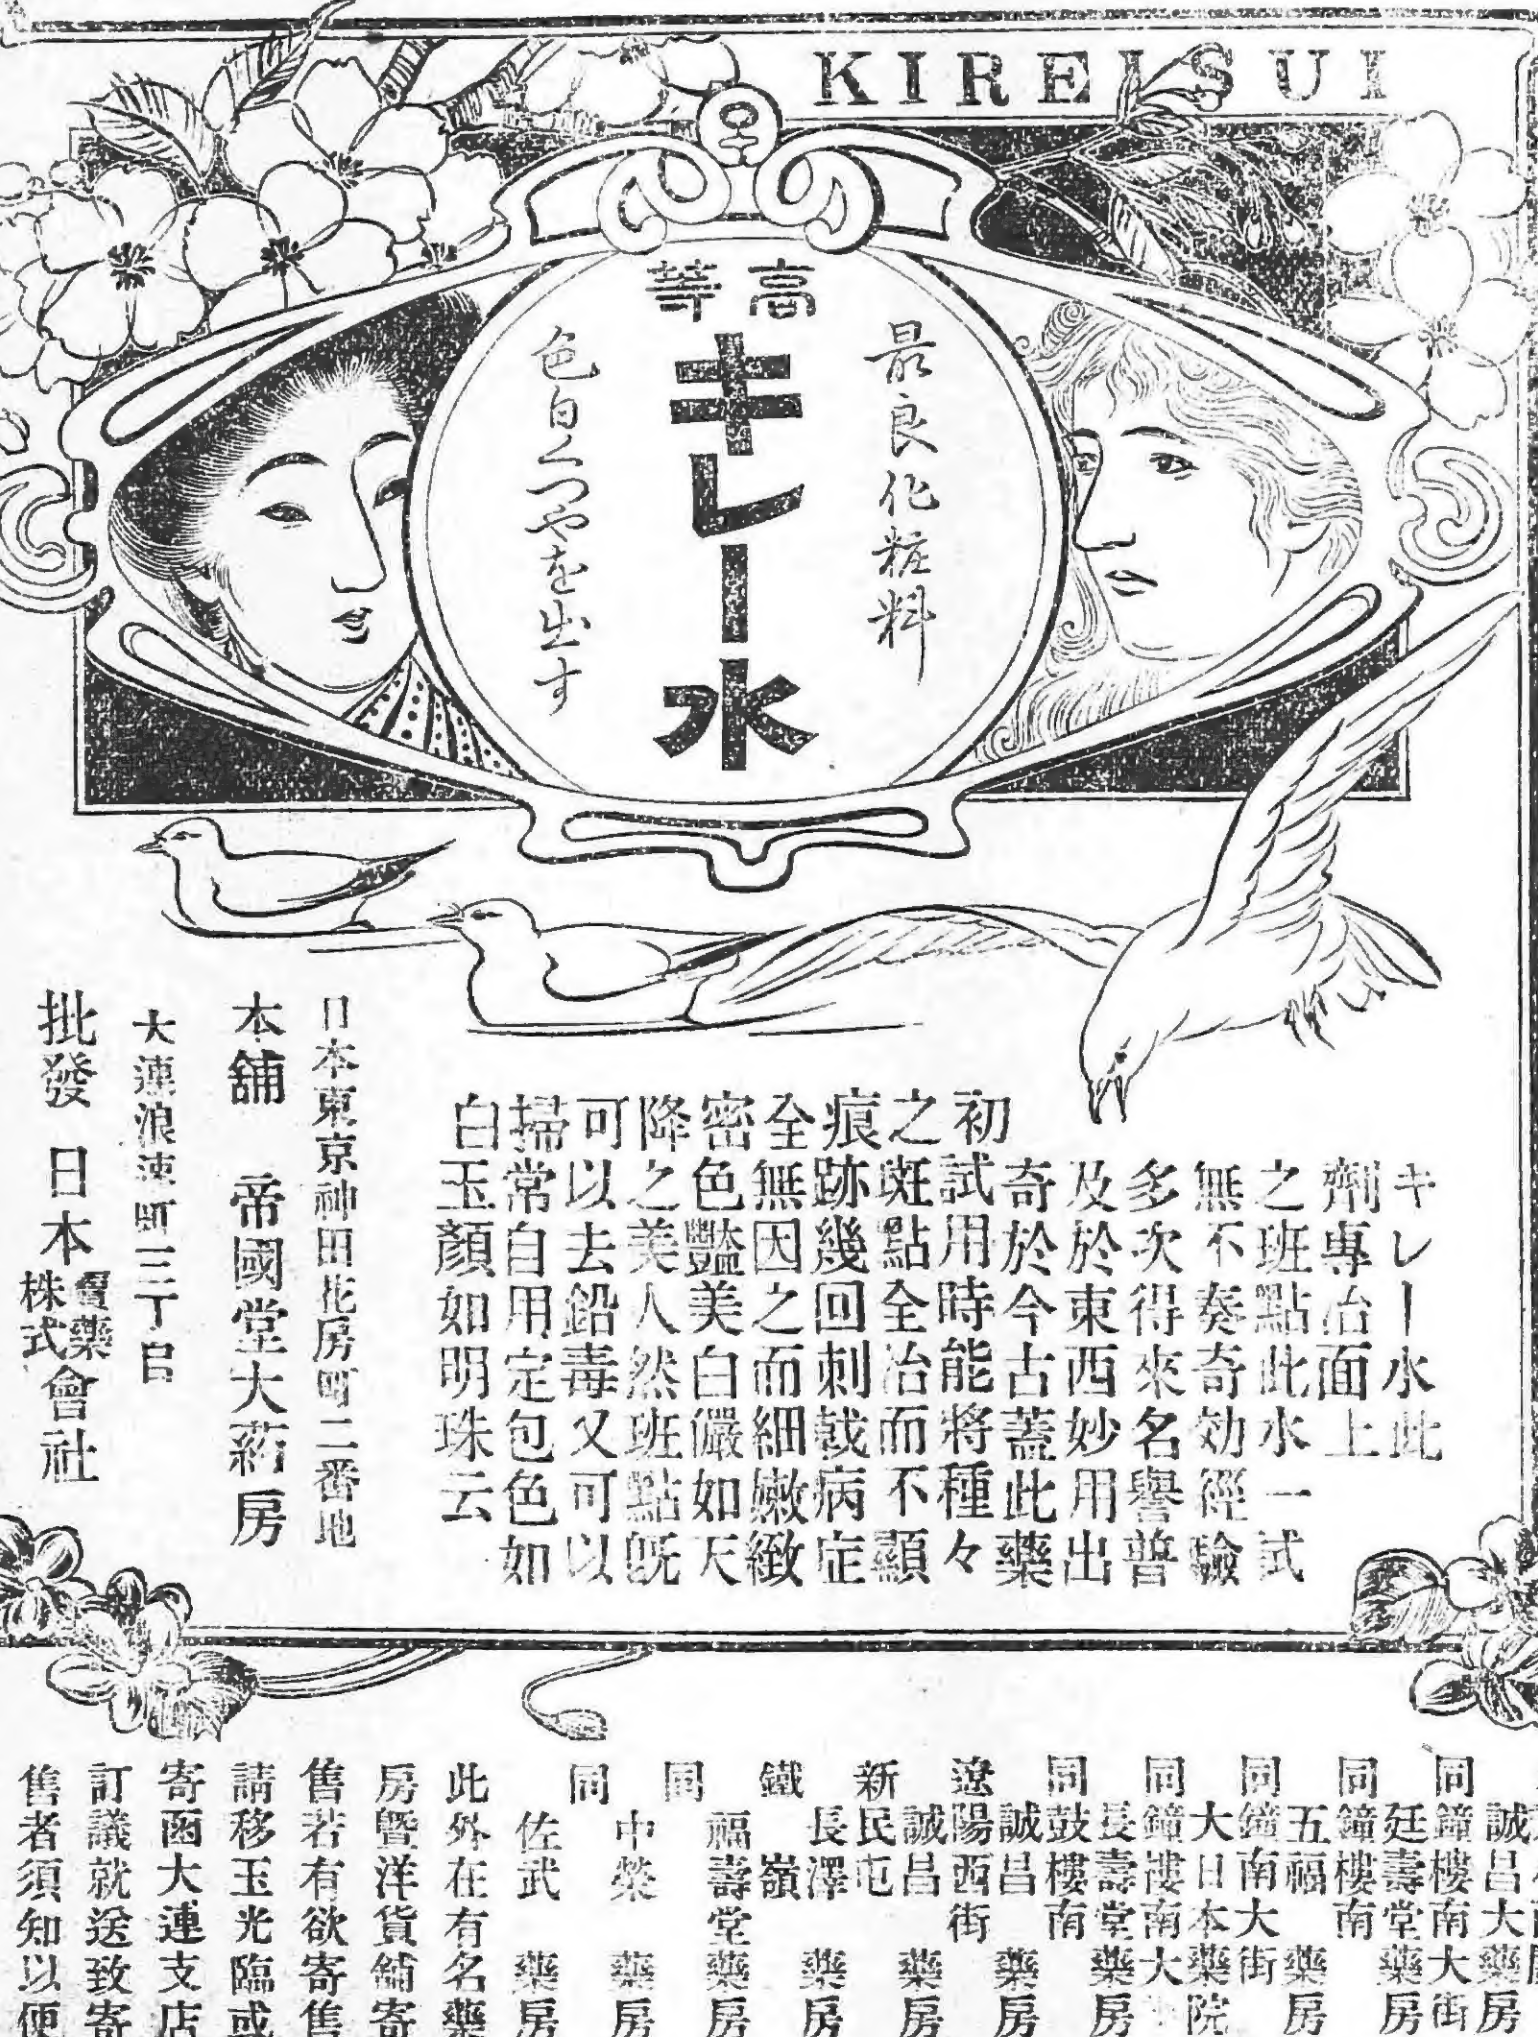 KIREISUI
高等
最良化粧料
キレー水
色白くつやを出す
キレー水此
劑專治面上
之班點此水一試
無不奏奇効徑驗
多次得來名譽普
及於東西妙用出
奇於今古蓋此藥
初試用時能將種々
之斑點全治而不顯
痕跡幾回刺戟病症
全無因之而細嫩緻
密色豔美白儼如天
降之美人然班點既
可以去鉛毒又可以
掃常自用定包色如
白玉顏如明珠云
日本東京神田北房町二番地
本舖 帝國堂大葯房
大連浪速町三丁目
批發 日本賣藥株式會社
誠昌大藥房
同鐘樓南大街
廷壽堂藥房
同鐘樓南
五福 藥房
同鐘南大街
大日本藥院
同鐘樓南大
長壽堂藥房
同鼓樓南
誠昌 藥房
遼陽西街
誠昌 藥房
新民屯
長澤 藥房
鐵嶺
福壽堂藥房
同
中榮 藥房
同
佐武 藥房
此外在有名藥
房暨洋貨舖寄
售若有欲寄售
請移玉光臨或
寄函大連支店
訂議就送致寄
售者須知以便